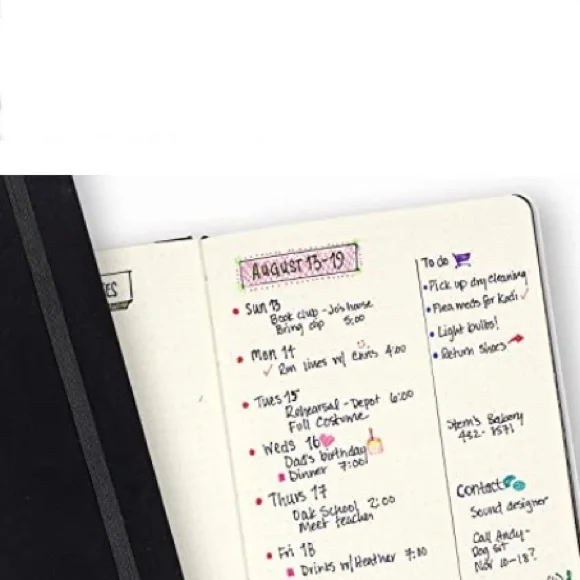 ES
AUGUST 13-19
Sun 13
Book club - Jo's house
Bring dip 5:00
Mon 14
Run lines w/ Chris 4:00
Tues 15
Rehearsal - Depot 6:00
Full Costume
Weds 16
Dad's birthday
Dinner 7:00
Thurs 17
Oak School 2:00
Meet teacher
Fri 18
Drinks w/Heather 7:30
To do
Pick up dry cleaning
Flea meds for Kodi
Light bulbs!
Return Shoes
Stern's Bakery
432-1571
Contact
Sound designer
Call Andy-
Dog sit
Nov 10-18?